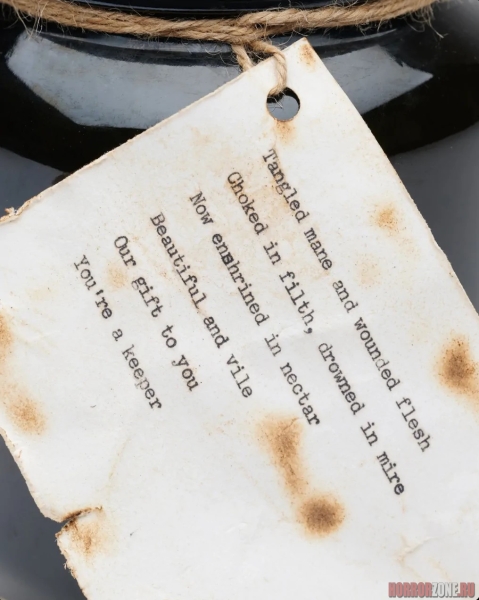 Tangled mane and wounded flesh
Choked in filth, drowned in mire
Now enshrined in nectar
Beautiful and vile
Our gift to you
You're a keeper
HORRORZONE.RU